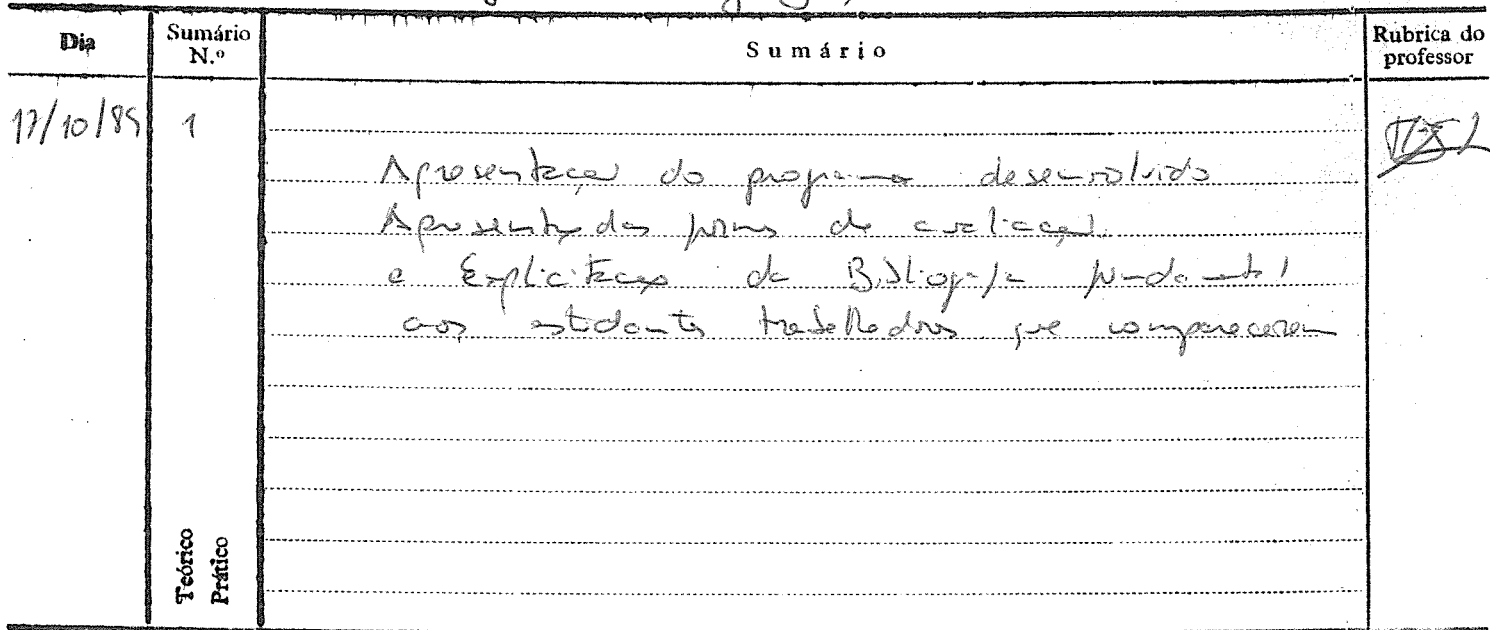 Dia
Sumário N.º
Sumário
Rubrica do professor
17/10/89
1
Apresentação do programa desenvolvido
Apresentação das formas de avaliação
e Explicitação da Bibliografia fundamental
aos estudantes trabalhadores que compareceram
Teórico
Prático